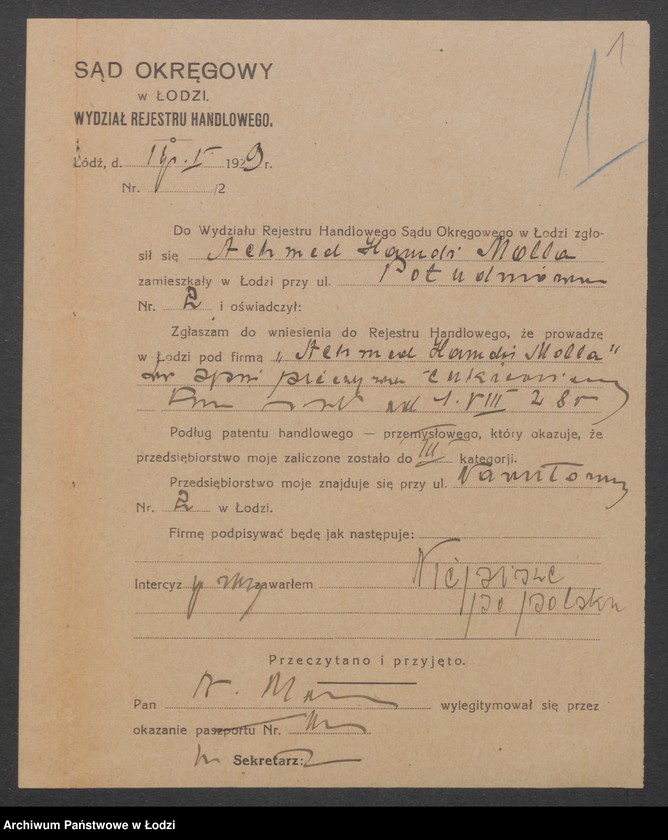 1
SĄD OKRĘGOWY
w ŁODZI.
WYDZIAŁ REJESTRU HANDLOWEGO.
Łódź, d. V 1929 r.
Nr. /2
Do Wydziału Rejestru Handlowego Sądu Okręgowego w Łodzi zgło-
sił się Achmed Hamdi Molla
zamieszkały w Łodzi przy ul. Południowa
Nr. 2 i oświadczył:
Zgłaszam do wniesienia do Rejestru Handlowego, że prowadzę
w Łodzi pod firmą „Achmed Hamdi Molla"
od 1.VIII 28 r
Podług patentu handlowego — przemysłowego, który okazuje, że
przedsiębiorstwo moje zaliczone zostało do III kategorji.
Przedsiębiorstwo moje znajduje się przy ul.
Nr. 2 w Łodzi.
Firmę podpisywać będę jak następuje:
Intercyz zawarłem
po polsku
Przeczytano i przyjęto.
Pan wylegitymował się przez
okazanie paszportu Nr.
Sekretarz:
Archiwum Państwowe w Łodzi